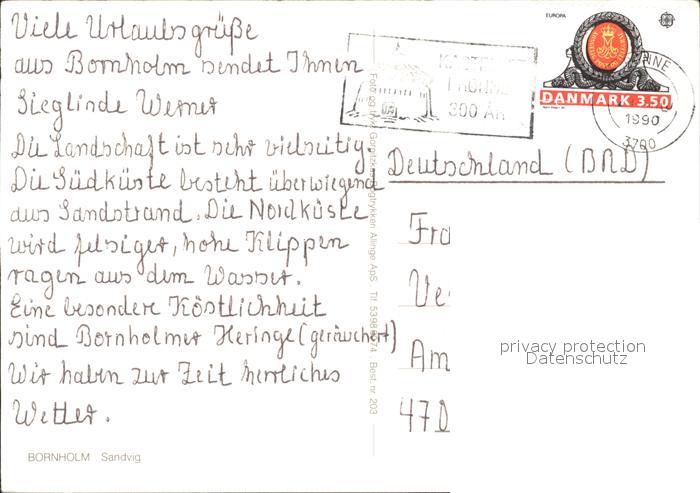 Viele Urlaubsgrüße
aus Bornholm sendet Ihnen
Sieglinde Werner
Die Landschaft ist sehr vielseitig.
Die Südküste besteht überwiegend
aus Sandstrand. Die Nordküste
wird felsiger, hohe Klippen
ragen aus dem Wasser.
Eine besondere Köstlichkeit
sind Bornholmer Heringe (geräuchert)
Wir haben zur Zeit herrliches
Wetter.
BORNHOLM Sandvig
Allinge ApS Best. nr. 203
EUROPA
DANMARK 3.50
RØNNE
1990
3700
300 ÅR
Deutschland (BRD)
Fra
Ve
Am
470
privacy protection
Datenschutz